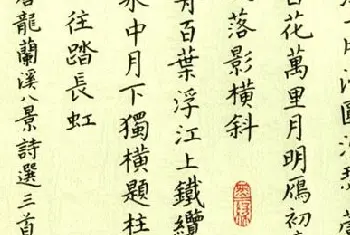 百花萬里月明鴈初
落影橫斜
百葉浮江上鐵纜
中月下獨橫題柱
往踏長虹
龍蘭溪八景詩選三首